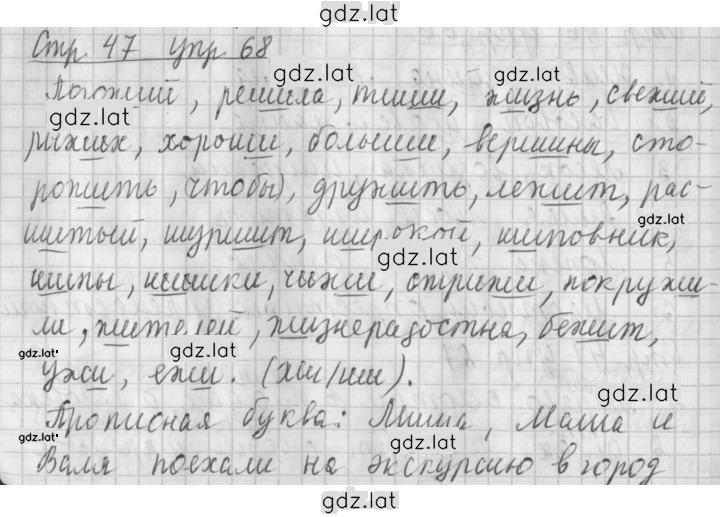 gdz.lat
Стр 47 упр 68
gdz.lat
gdz.lat
решила, тиши, жизнь, свежий,
gdz.lat
рыжих, хороши, большие, вершины, сто-
рожить, чтобы), дружить, лежит, рас-
gdz.lat
шитый, шуршит, широкой, шиповник,
gdz.lat
шипы, шишки, чижи, стрижи, покружи-
ли, житолой, жизнерадостна, бежит,
gdz.lat
gdz.lat
ужи, ежи. (жи/ши).
gdz.lat
Прописная буква: Миша, Маша и
gdz.lat
gdz.lat
Валя поехали на экскурсию в город
gdz.lat